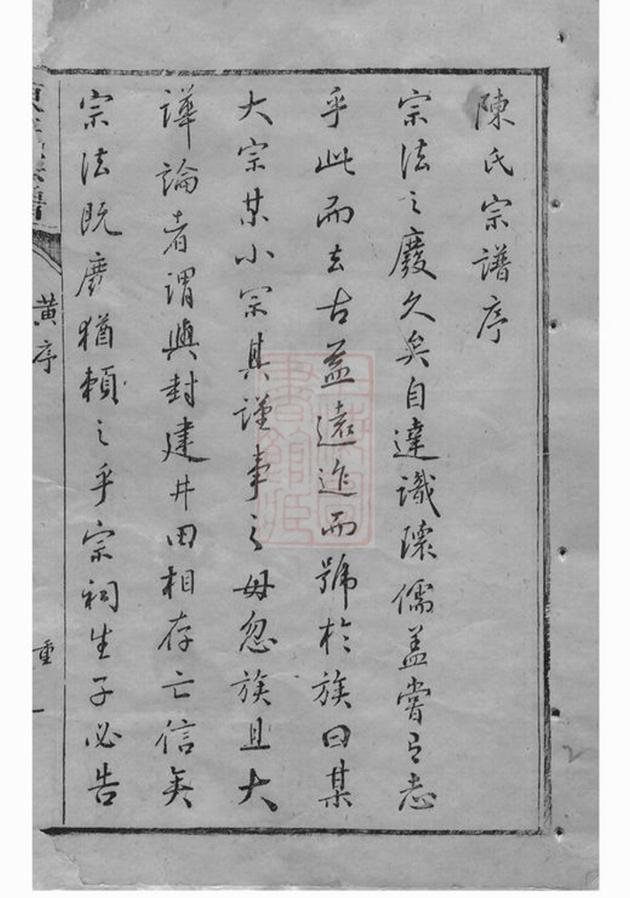 陳氏宗譜序
宗法之廢久矣自達識瓌儒蓋嘗有志
乎此而去古益遠迮而號於族曰某
大宗某小宗其謹事之毋忽族且大
譁論者謂與封建井田相存亡信矣
宗法既廢猶賴之乎宗祠生子必告
黃序
重一